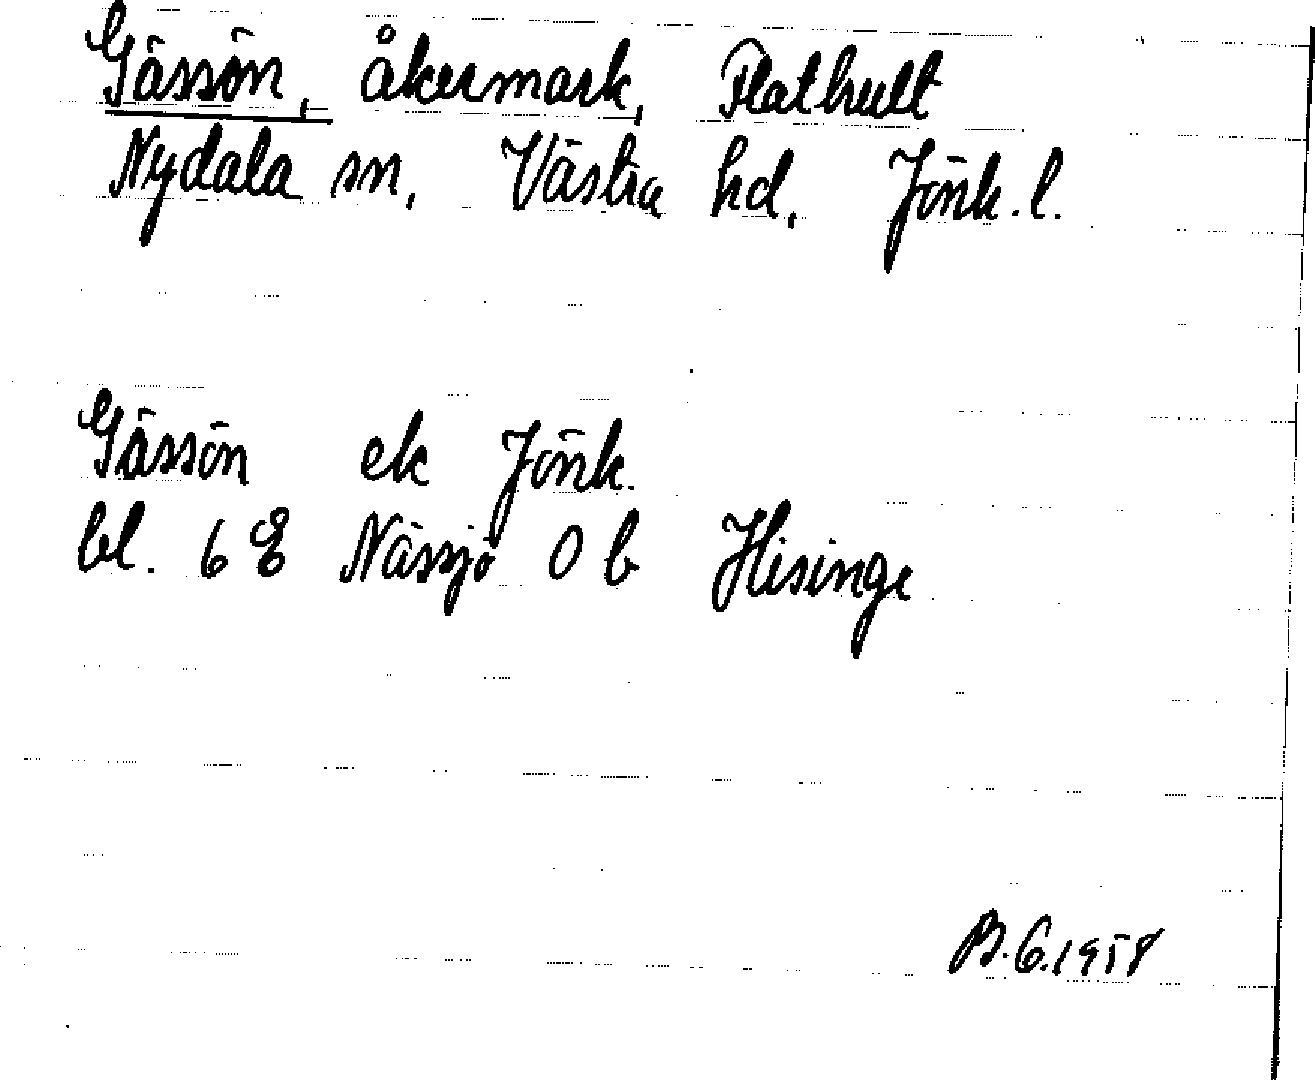 Gässön, åkermark, Flathult
Nydala sn, Västra hd, Jönk.l.
Gässön ek Jönk.
bl. 6 E Nässjö 0 b Hisinge
B.G.1958